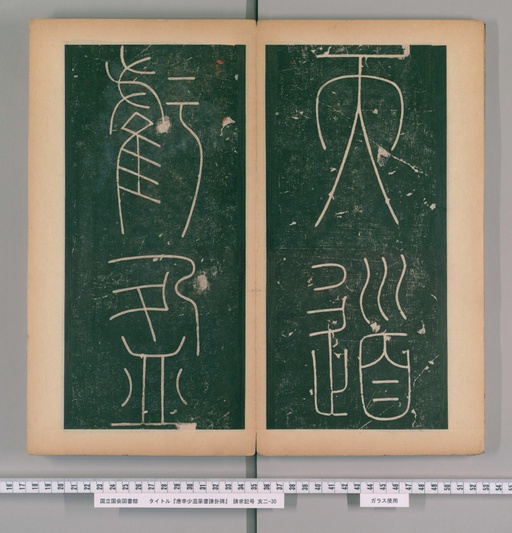 天道
虧盈
国立国会図書館 タイトル『唐李少温篆書謙卦碑』 請求記号 亥二-30
ガラス使用